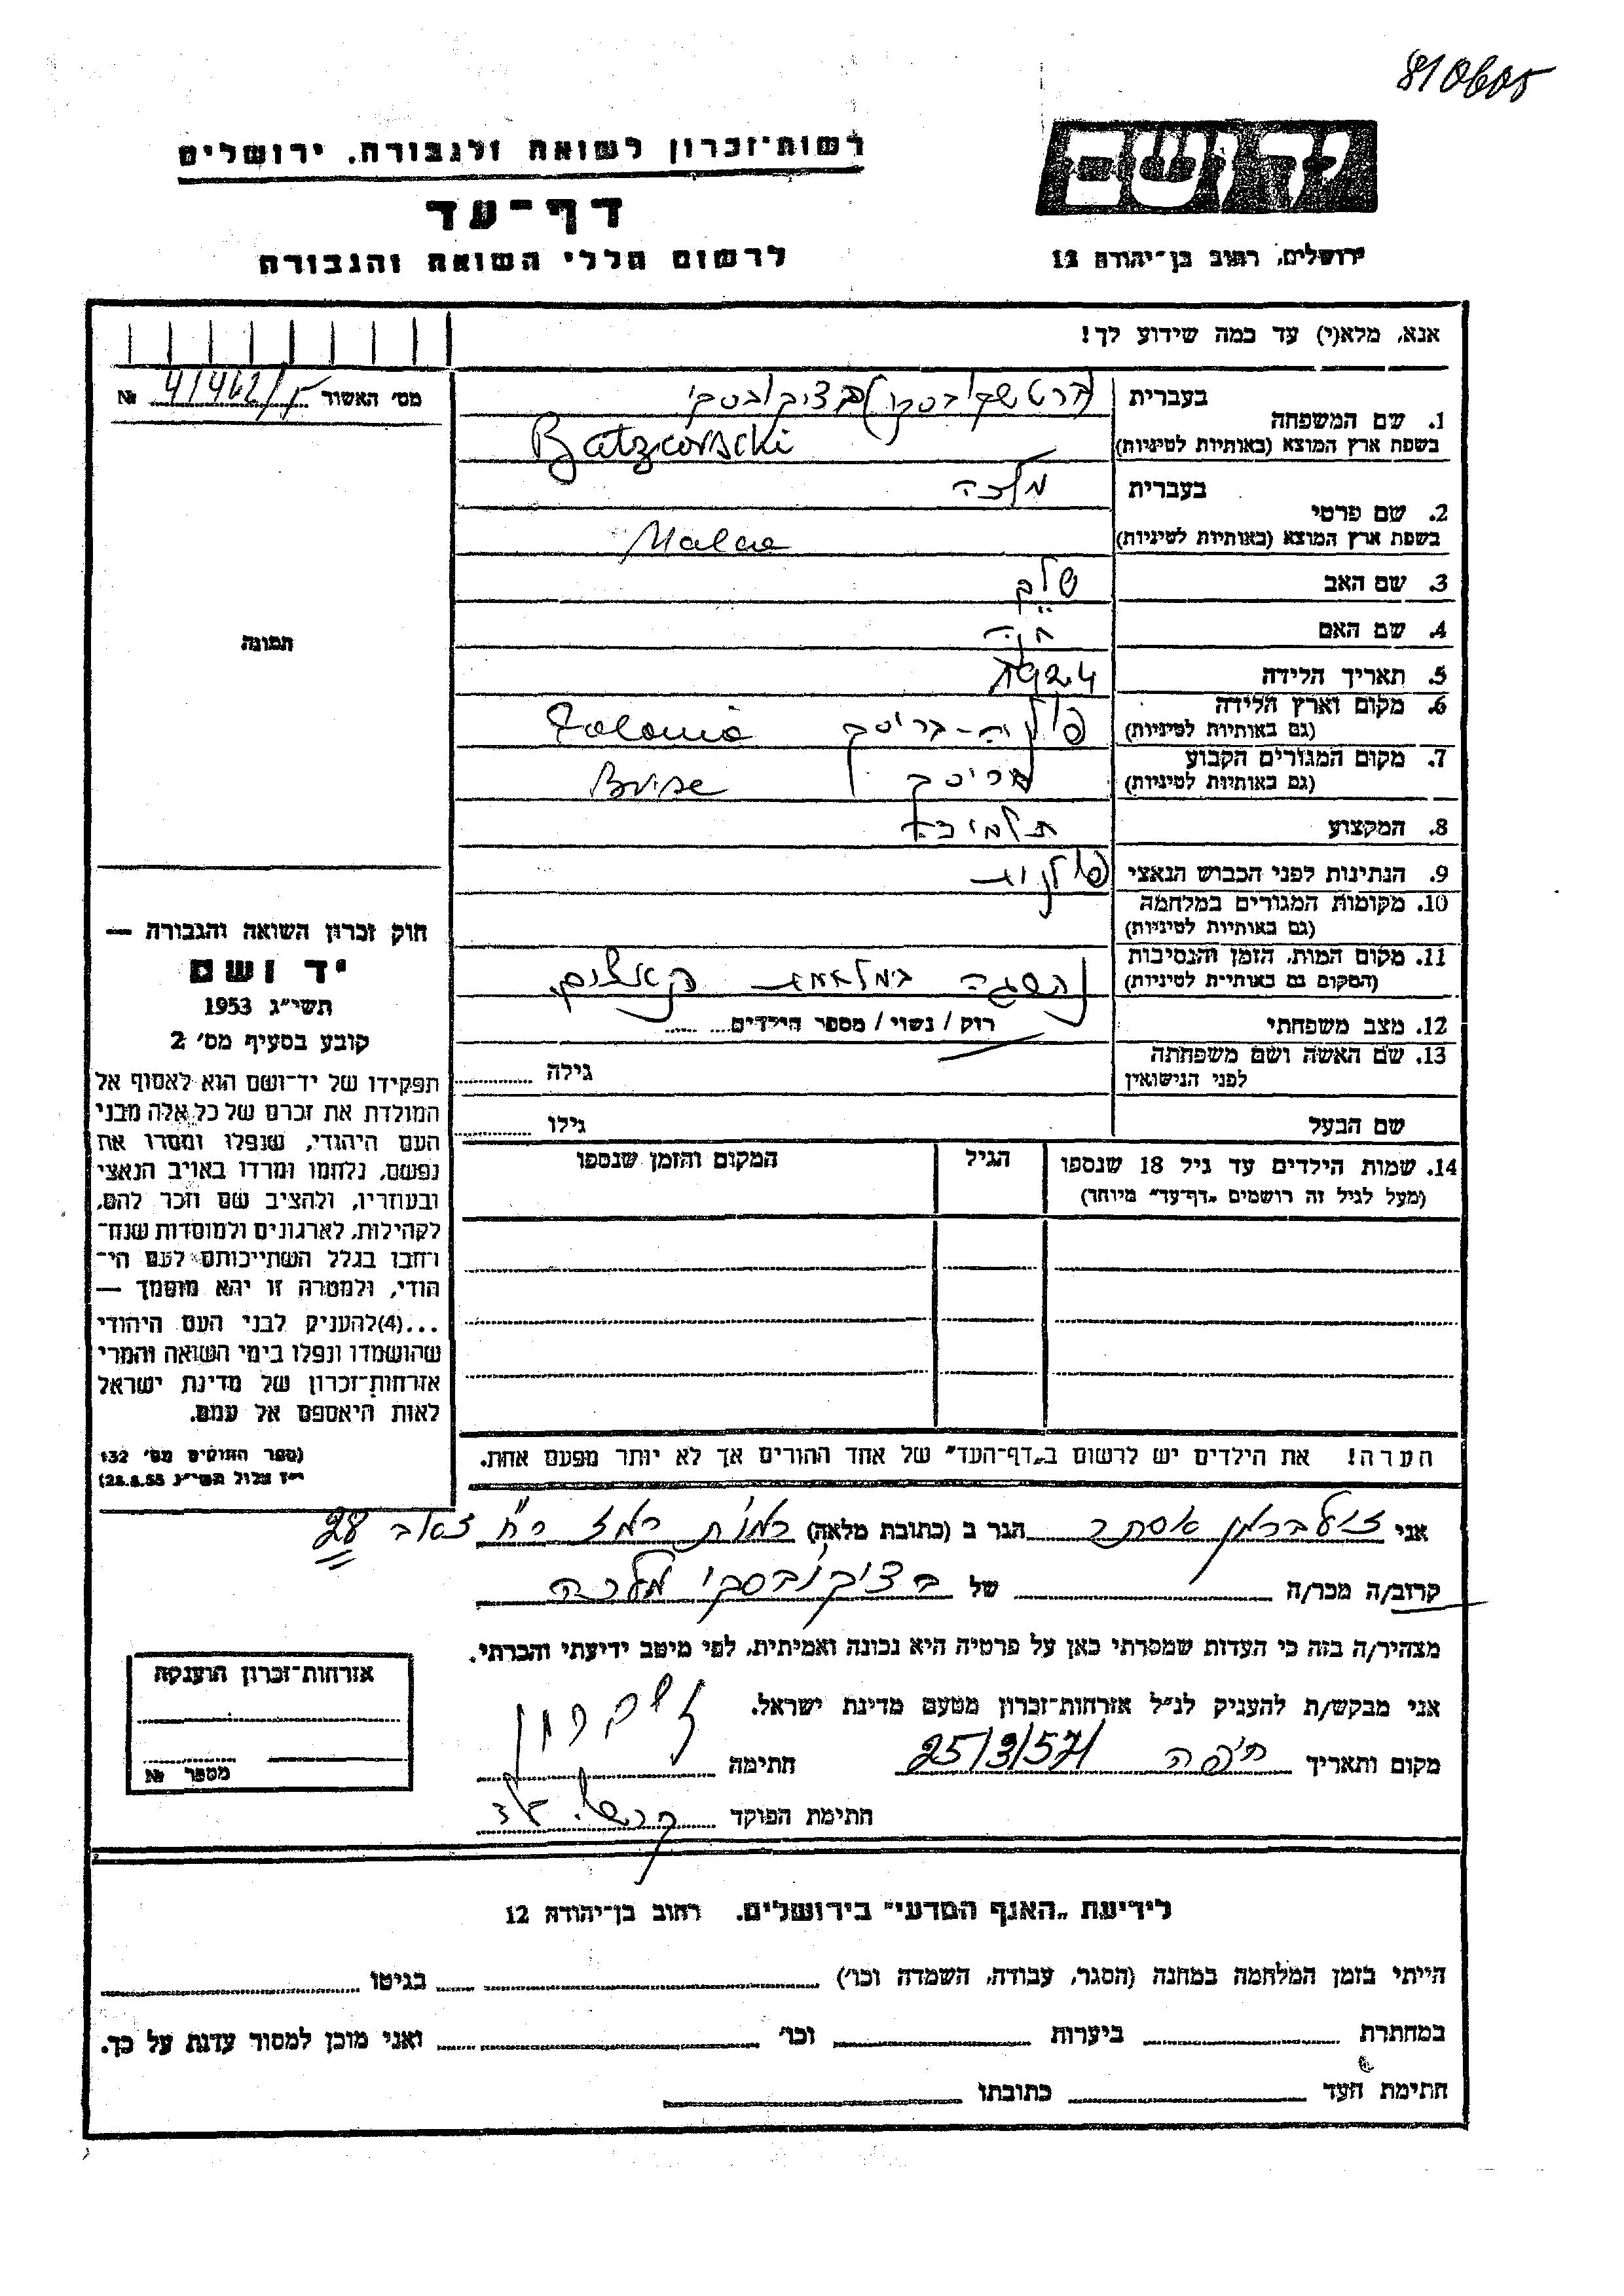 810605
רשות־זכרון לשואה ולגבורה. ירושלים
דף־עד
לרשום חללי השואה והגבורה
יד ושם
ירושלים, רחוב בן־יהודה 12
אנא, מלא(י) עד כמה שידוע לך!
מס׳ האשור № 4/462/
1. שם המשפחה
בעברית בציקובסקי
בשפת ארץ המוצא (באותיות לטיניות) Batzcovscki
2. שם פרטי
בעברית מלכה
בשפת ארץ המוצא (באותיות לטיניות) Malce
3. שם האב
4. שם האם חיה
5. תאריך הלידה 1924
6. מקום וארץ הלידה
(גם באותיות לטיניות) פולניה־בריסק Polania
7. מקום המגורים הקבוע
(גם באותיות לטיניות) בריסק Brisc
8. המקצוע תלמידה
9. הנתינות לפני הכבוש הנאצי פולנית
10. מקומות המגורים במלחמה
(גם באותיות לטיניות)
11. מקום המות, הזמן והנסיבות
(המקום גם באותיות לטיניות) נהרגה במלחמת הנאצים
12. מצב משפחתי רוק / נשוי / מספר הילדים
13. שם האשה ושם משפחתה
לפני הנישואין גילה
שם הבעל גילו
14. שמות הילדים עד גיל 18 שנספו
(מעל לגיל זה רושמים „דף־עד״ מיוחד)
הגיל
המקום והזמן שנספו
תמונה
חוק זכרון השואה והגבורה —
יד ושם
תשי״ג 1953
קובע בסעיף מס׳ 2
תפקידו של יד־ושם הוא לאסוף אל
המולדת את זכרם של כל אלה מבני
העם היהודי, שנפלו ומסרו את
נפשם, נלחמו ומרדו באויב הנאצי
ובעוזריו, ולהציב שם וזכר להם,
לקהילות, לארגונים ולמוסדות שנח־
רבו בגלל השתייכותם לעם הי־
הודי, ולמטרה זו יהא מוסמך —
...(4)להעניק לבני העם היהודי
שהושמדו ונפלו בימי השואה והמרי
אזרחות־זכרון של מדינת ישראל
לאות היאספם אל עמם.
(ספר החוקים מס׳ 132
י״ז אלול תשי״ג 28.8.53)
הערה! את הילדים יש לרשום ב„דף־העד״ של אחד ההורים אך לא יותר מפעם אחת.
אני זילברמן אסתר הגר ב (כתובת מלאה) רמות רמז רח׳ 28
קרוב/ה מכר/ה של בציקובסקי מלכה
מצהיר/ה בזה כי העדות שמסרתי כאן על פרטיה היא נכונה ואמיתית, לפי מיטב ידיעתי והכרתי.
אני מבקש/ת להעניק לנ״ל אזרחות־זכרון מטעם מדינת ישראל.
מקום ותאריך חיפה 25/3/57 חתימה
חתימת הפוקד
אזרחות־זכרון הוענקה
מספר №
לידיעת „האגף המדעי״ בירושלים. רחוב בן־יהודה 12
הייתי בזמן המלחמה במחנה (הסגר, עבודה, השמדה וכו׳) בגיטו
במחתרת ביערות וכו׳ ואני מוכן למסור עדות על כך.
חתימת העד כתובתו